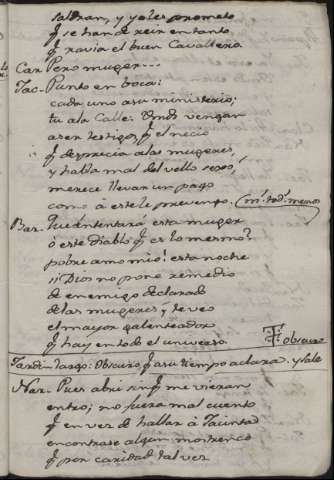 saldran, y yo les prometo
q̃. se han de reir en tanto
q̃. ravia el buen Cavallero.
Car. Pero muger...
Jac. Punto en boca:
cada uno a su ministerio;
tu a la Calle: Vmds vengan
a ser testigos q̃. el necio
q̃. desprecia a las mugeres,
y habla mal del vello sexo,
merece llevar un pago
como à este le prevengo. (m.s tod.s menos
Bar. Que intentará esta muger
ò este diablo q̃. es lo mesmo?
pobre amo mio! esta noche
si Dios no pone remedio
de enemigo declarado
de las mugeres, te veo
el mayor galenteador
q̃. hay en todo el universo. obscuro
Jardin largo: Obscuro q̃. a su tiempo aclara y sale
Nar. Pues abri sin q̃. me vieran
entro; no fuera mal cuento
q̃ en vez de hallar à Jacinta
encontrase algun mostrenco
q̃ por caridad tal vez